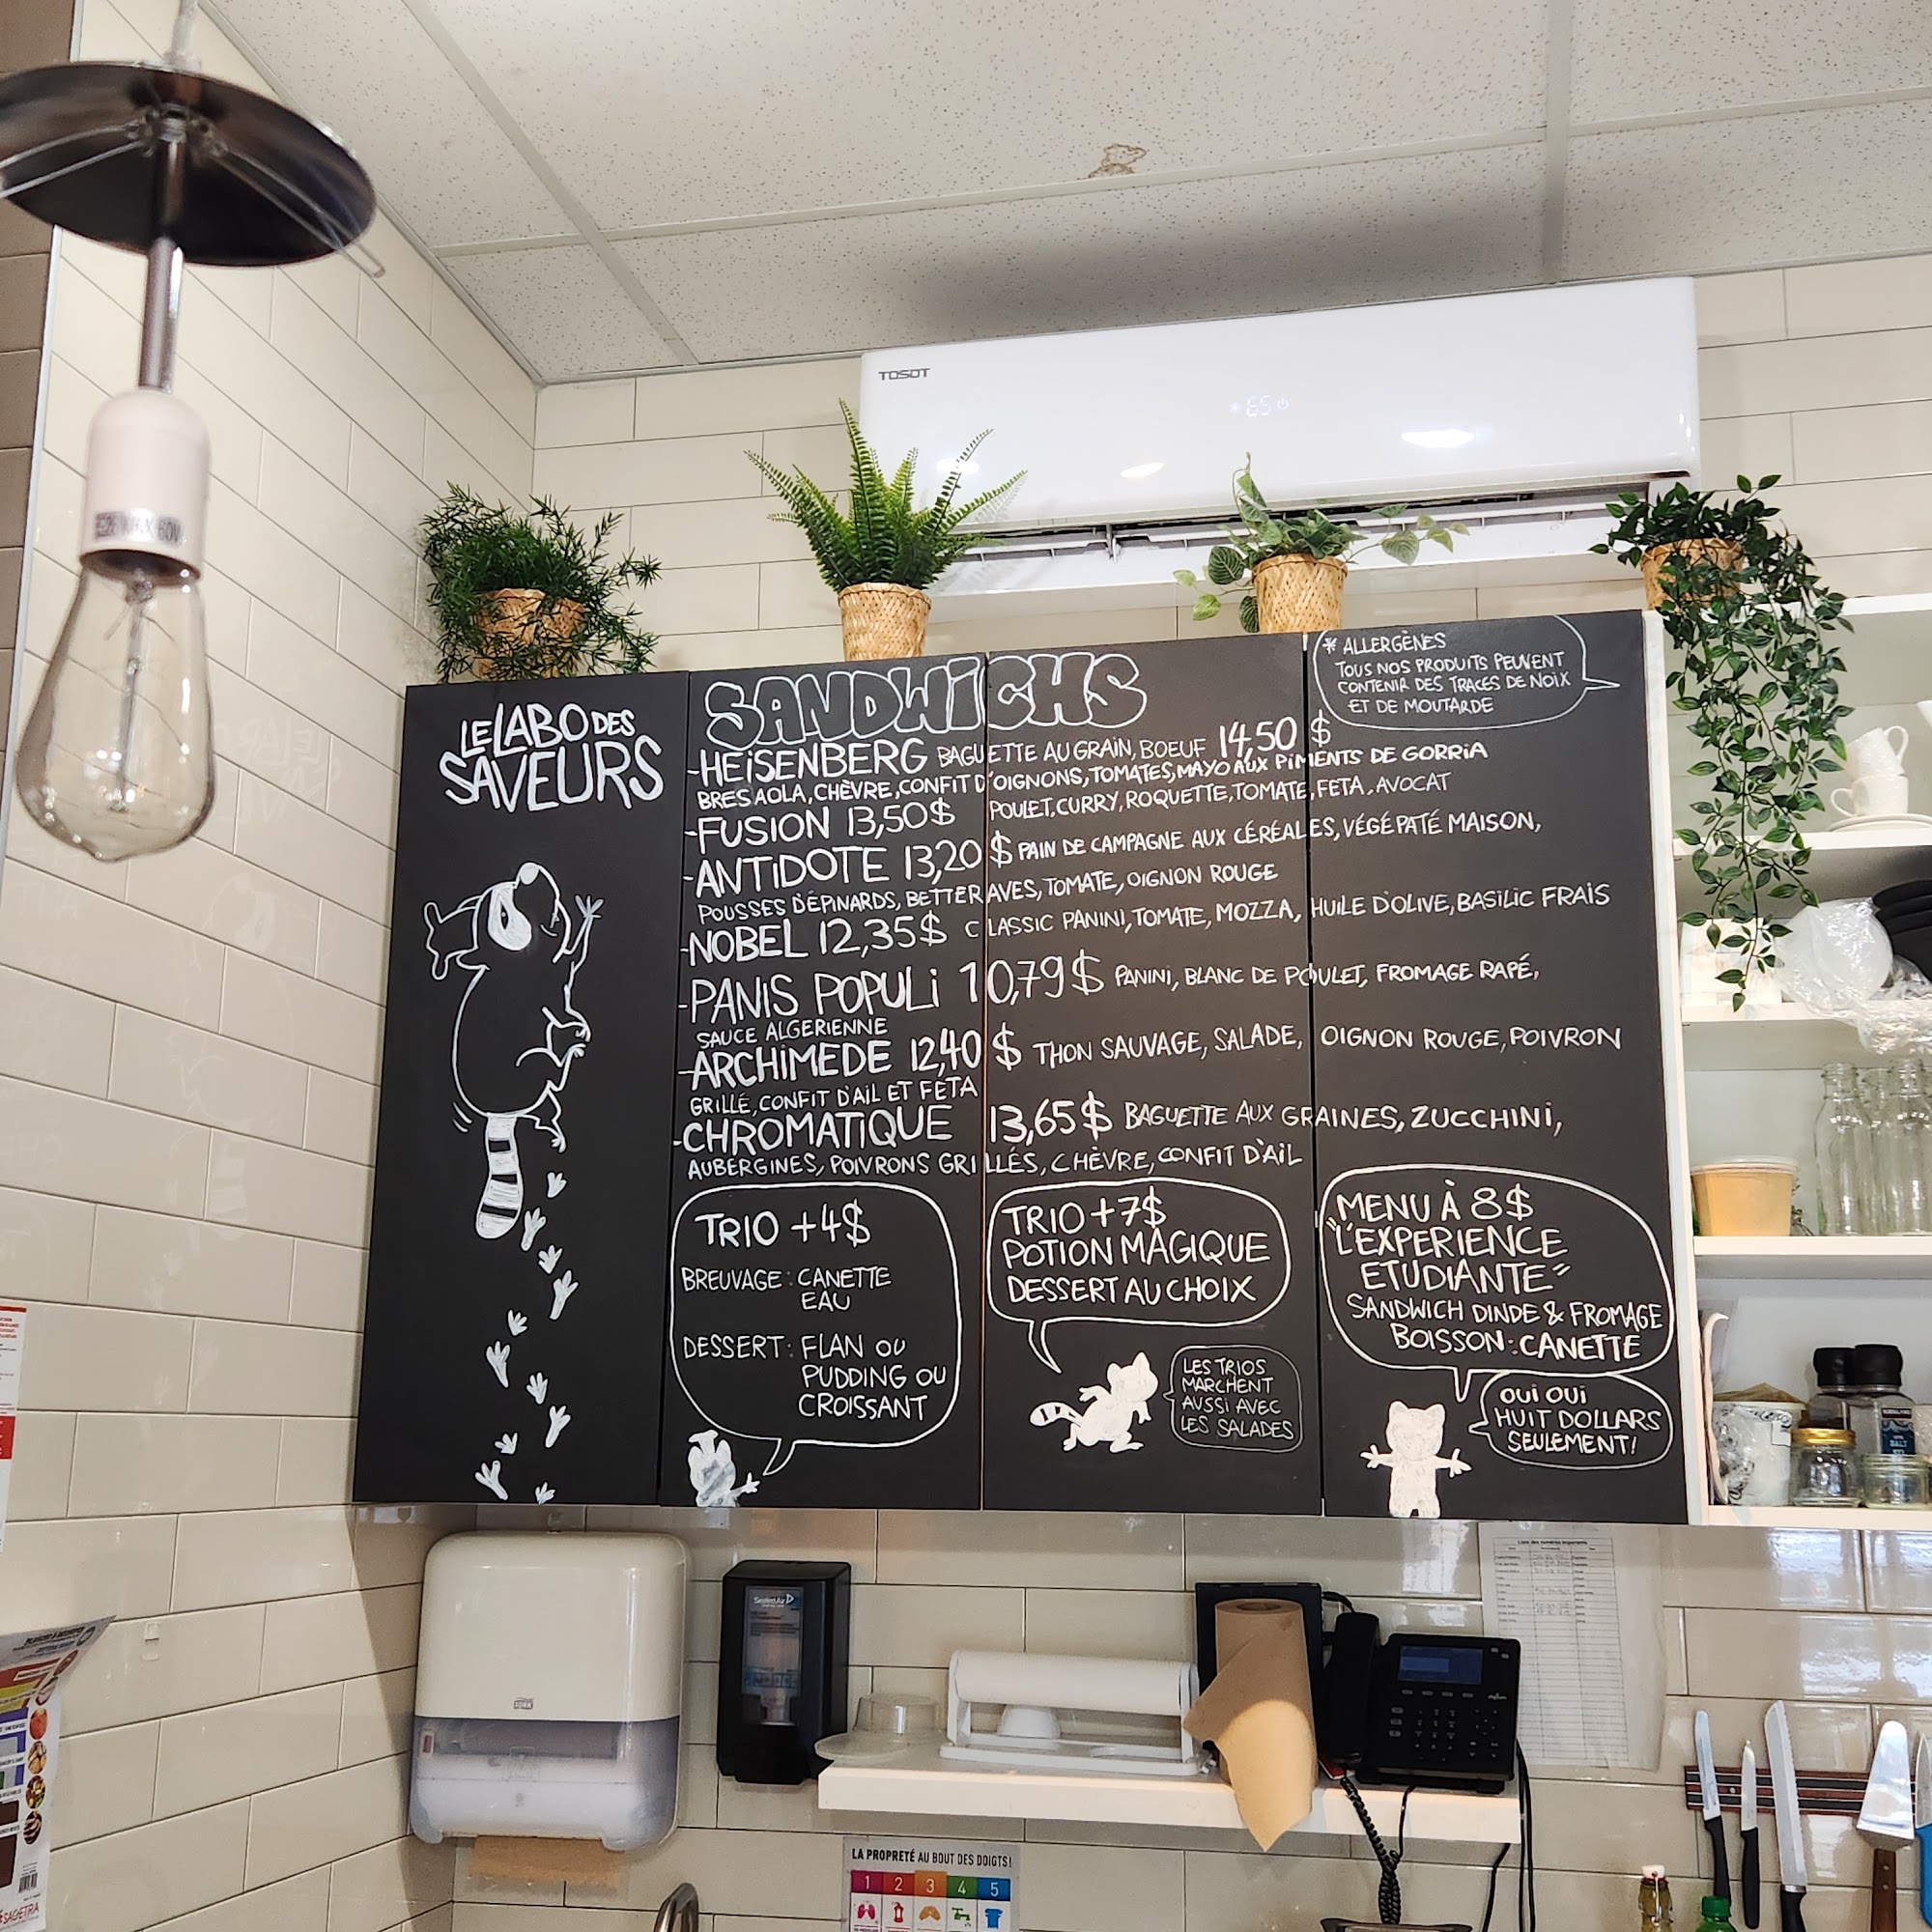 TOSOT
E5
LE LABO DES
SAVEURS
SANDWICHS
* ALLERGÈNES
TOUS NOS PRODUITS PEUVENT
CONTENIR DES TRACES DE NOIX
ET DE MOUTARDE
-HEISENBERG BAGUETTE AU GRAIN, BOEUF 14,50 $
BRESAOLA, CHÈVRE, CONFIT D'OIGNONS, TOMATES, MAYO AUX PIMENTS DE GORRIA
-FUSION 13,50$ POULET, CURRY, ROQUETTE, TOMATE, FETA, AVOCAT
-ANTIDOTE 13,20 $ PAIN DE CAMPAGNE AUX CÉRÉALES, VÉGÉPATÉ MAISON,
POUSSES D'ÉPINARDS, BETTERAVES, TOMATE, OIGNON ROUGE
-NOBEL 12,35$ CLASSIC PANINI, TOMATE, MOZZA, HUILE D'OLIVE, BASILIC FRAIS
-PANIS POPULI 10,79$ PANINI, BLANC DE POULET, FROMAGE RAPÉ,
SAUCE ALGERIENNE
-ARCHIMEDE 12,40 $ THON SAUVAGE, SALADE, OIGNON ROUGE, POIVRON
GRILLÉ, CONFIT D'AIL ET FETA
-CHROMATIQUE 13,65$ BAGUETTE AUX GRAINES, ZUCCHINI,
AUBERGINES, POIVRONS GRILLÉS, CHÈVRE, CONFIT D'AIL
TRIO +4$
BREUVAGE: CANETTE
EAU
DESSERT: FLAN OU
PUDDING OU
CROISSANT
TRIO +7$
POTION MAGIQUE
DESSERT AU CHOIX
LES TRIOS
MARCHENT
AUSSI AVEC
LES SALADES
MENU À 8$
"L'EXPERIENCE
ETUDIANTE"
SANDWICH DINDE & FROMAGE
BOISSON: CANETTE
OUI OUI
HUIT DOLLARS
SEULEMENT!
LA PROPRETÉ AU BOUT DES DOIGTS!
1 2 3 4 5